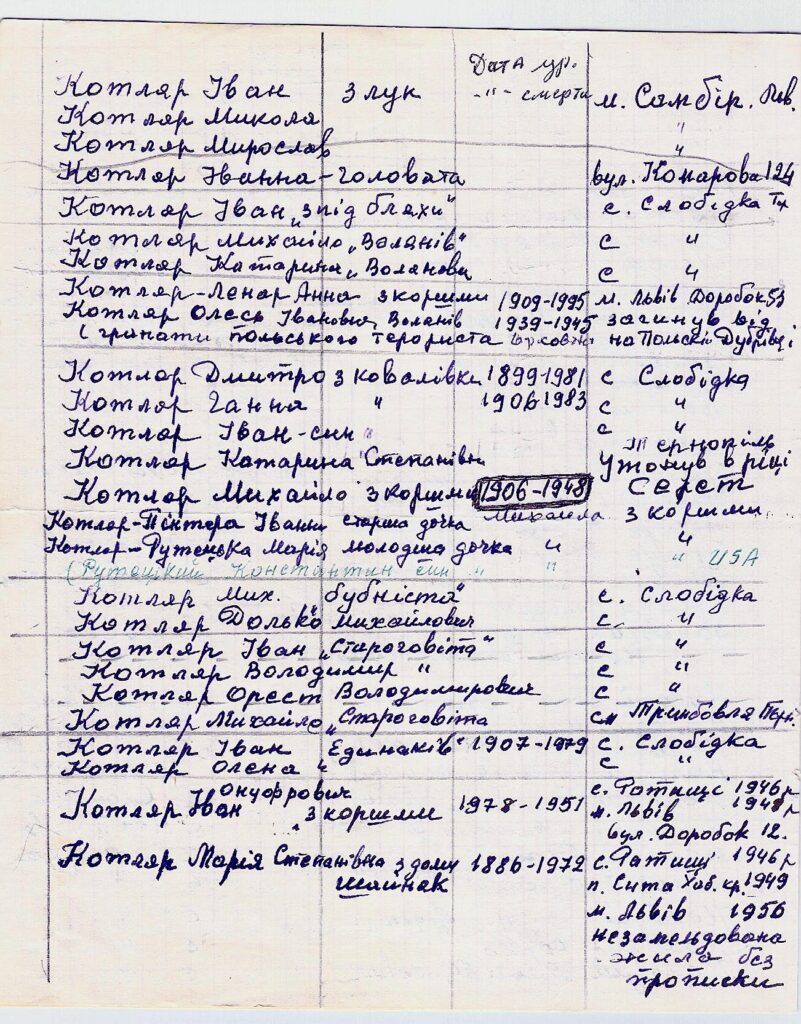 Дата ур.
Котляр Іван з лук -"- смерти м. Самбір. Льв.
Котляр Микола "
Котляр Мирослав "
Котляр Іванна-Головата вул. Комарова 124
Котляр Іван "зпід бляхи" с. Слобідка Тр
Котляр Михайло "Воланів" с "
Котляр Катарина "Воланова с "
Котляр-Ленар Анна з коршми 1909-1995 м. Львів Доробок 53
Котляр Олесь Іванович Воланів 1939-1945 загинув від
(гранати польського терориста на Польскі Дубрівці
Котляр Дмитро з ковалівки 1899-1981 с Слобідка
Котляр Ганна " 1906-1983 с "
Котляр Іван-син " с "
Котляр Катарина Степанівна Тернопіль
Котляр Михайло з коршми 1906-1948 утонув в ріці Серет
Котляр-Пінтера Іванна старша дочка Михайла з коршми
Котляр-Рутецька Марія молодша дочка " "
(Рутецкий Константин син " " " USA
Котляр Мих. бубніста" с. Слобідка
Котляр Долько Михайлович с "
Котляр Іван "Староговіта" с "
Котляр Володимир " с "
Котляр Орест Володимирович с "
Котляр Михайло "Староговіта см Тримбовля Терн.
Котляр Іван Єдинаків" 1907-1979 с. Слобідка
Котляр Олена " с "
Онуфрович с. Ратищі 1946 р
Котляр Іван з коршми 1978-1951 м. Львів 1948 р
вул. Доробок 12.
Котляр Марія Степанівна з дому 1886-1972 с. Ратищі 1946 р
Шайнак п. Сита Хаб. кр. 1949
м. Львів 1956
незамельдована
жила без
прописки